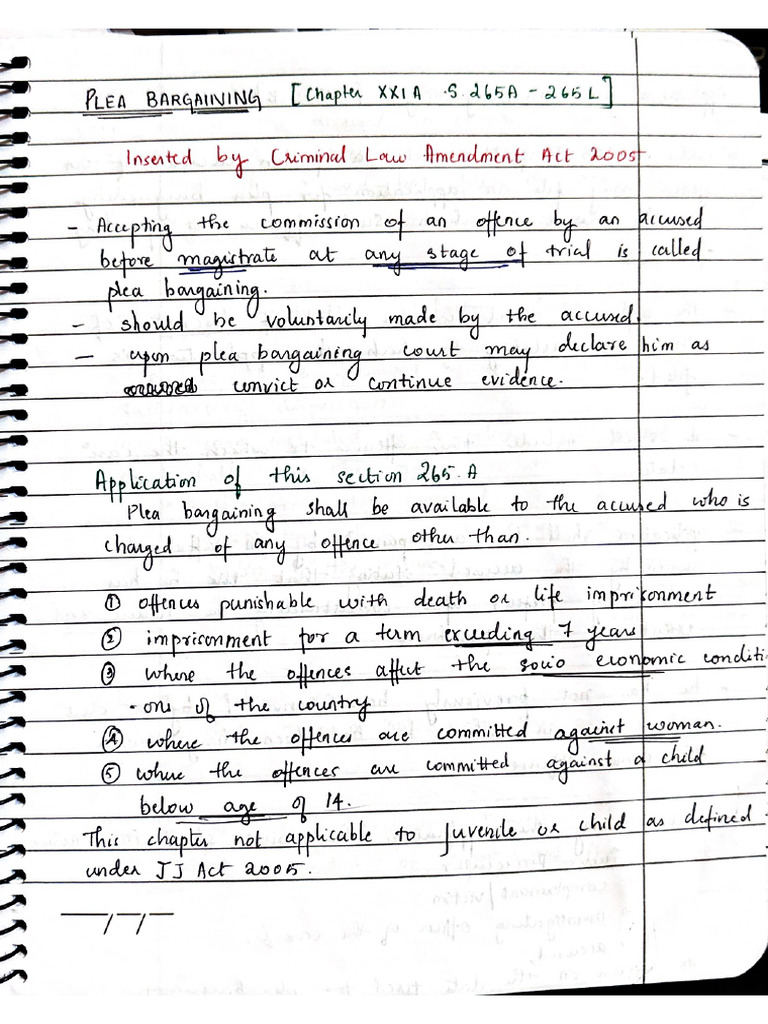 PLEA BARGAINING [Chapter XXIA S. 265A - 265L]
Inserted by Criminal Law Amendment Act 2005
- Accepting the commission of an offence by an accused
before magistrate at any stage of trial is called
plea bargaining.
- should be voluntarily made by the accused.
- upon plea bargaining court may declare him as
convict or continue evidence.
Application of this section 265.A
Plea bargaining shall be available to the accused who is
charged of any offence other than.
① offences punishable with death or life imprisonment
② imprisonment for a term exceeding 7 years
③ where the offences affect the socio economic conditi
- ons of the country
④ where the offences are committed against woman.
⑤ where the offences are committed against a child
below age of 14.
This chapter not applicable to juvenile or child as defined
under JJ Act 2005.